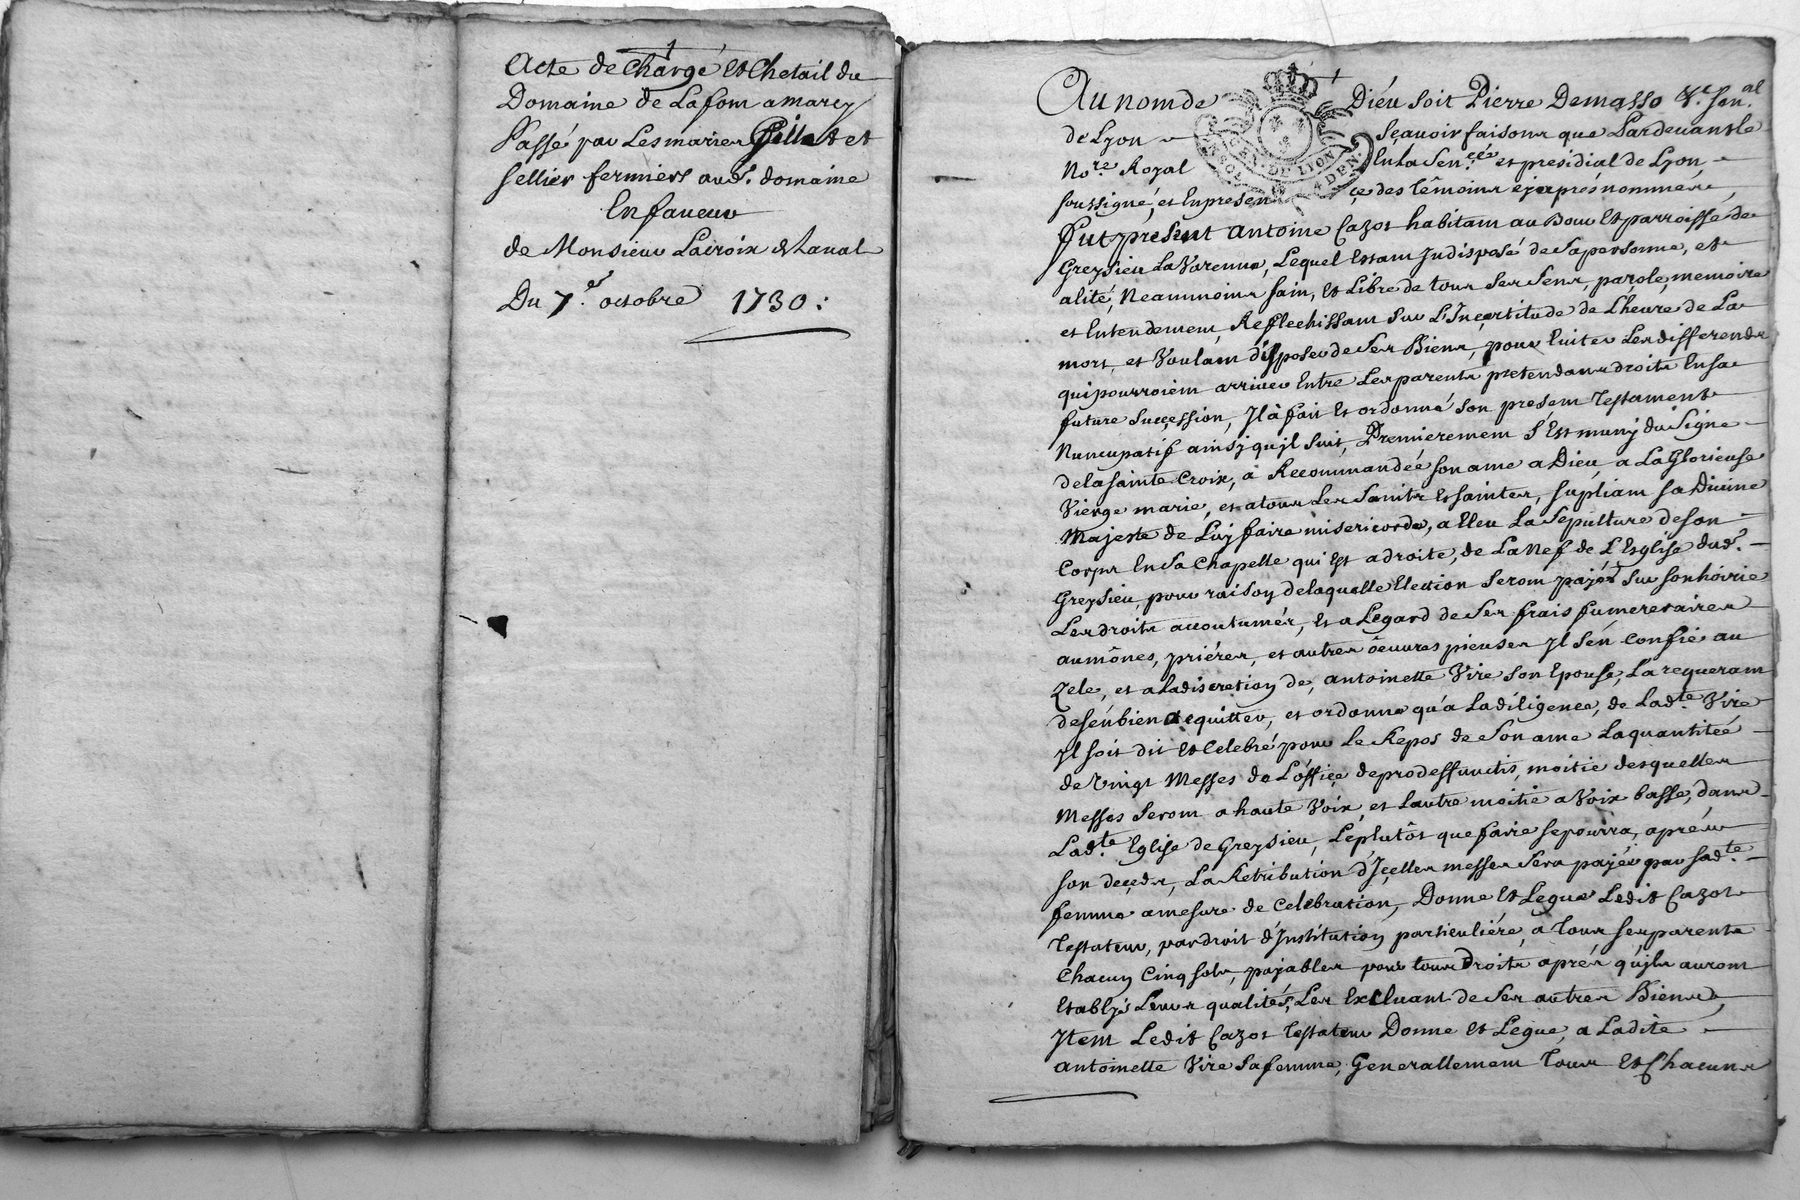 Acte de Chargé et Chetail du
Domaine de Lafont a marcy
Passé par Les mariez Gillet et
Sellier fermiers aud.t domaine
En faveur
de Monsieur Lacroix de Laval
Du 7.e octobre 1730:
Au nom de Dieu soit Pierre Demasso
de Lyon Sçavoir faisons que Pardevant le
No.re Royal En la Sen.cée et presidial de Lyon
soussigné, et En presence des têmoins cy aprés nommés,
fut présent antoine Cazot habitant au Bour et parroisse de
Greysieu La Varenne, Lequel Estant Indisposé de Sa personne, et
alité, Neanmoins sain, et Libre de tous Ses Sens, parole, memoire
et Entendement, Reflechissant Sur L'Incertitude de L'heure de La
mort, et Voulant disposer de Ses Biens, pour Eviter Les differends
qui pourroient arriver Entre Les parents pretendans droits En sa
future Succession, Il à fait et ordonné Son present Testament
Nuncupatif ainsy qu'il Suit, Premierement S'Est muny du Signe
de la sainte Croix, à Recommandée son ame a Dieu, a La Glorieuse
Vierge marie, et a tous Les Saints et saintes, supliant sa Divine
Majesté de Luy faire misericorde, a Eleu La Sepulture de son
Corps En Sa Chapelle qui Est a droite, de La Nef de L'Esglise dud.t
Greysieu, pour raison de laquelle Election Seront payés Sur son hoirie
Les droits accoutumés, Et a Legard de Ses frais funereraires
aumônes, priéres, et autres oéuvres pieuses Il s'én confie au
Zele, et a La discretion de, antoinette Vire Son Epouse, La requerant
de s'én bien acquitter, et ordonne qu'à La diligence, de Lad.te Vire
Il soit dit et Celebré pour Le Repos de Son ame La quantitée
de Vingt Messes de L'office de pro deffunctis, moitié desquelles
Messes Seront a haute Voix, et Lautre moitié a Voix basse, dans
Lad.te Eglise de Greysieu, Le plutôt que faire se pourra, aprés
son decéds, La Retribution d'Icelles messes Sera payée par sad.te
femme a mesure de Celebration, Donne et Legue Ledit Cazot
Testateur, par droit d'Institution particuliére, a Tous ses parents
Chacun Cinq sols, payables pour tous Droits aprés qu'ils auront
Etablys Leurs qualités, Les Excluant de Ses autres Biens,
Item Ledit Cazot Testateur Donne et Legue, a Ladite
antoinette Vire Sa femme, Generallement Tous et Chacuns